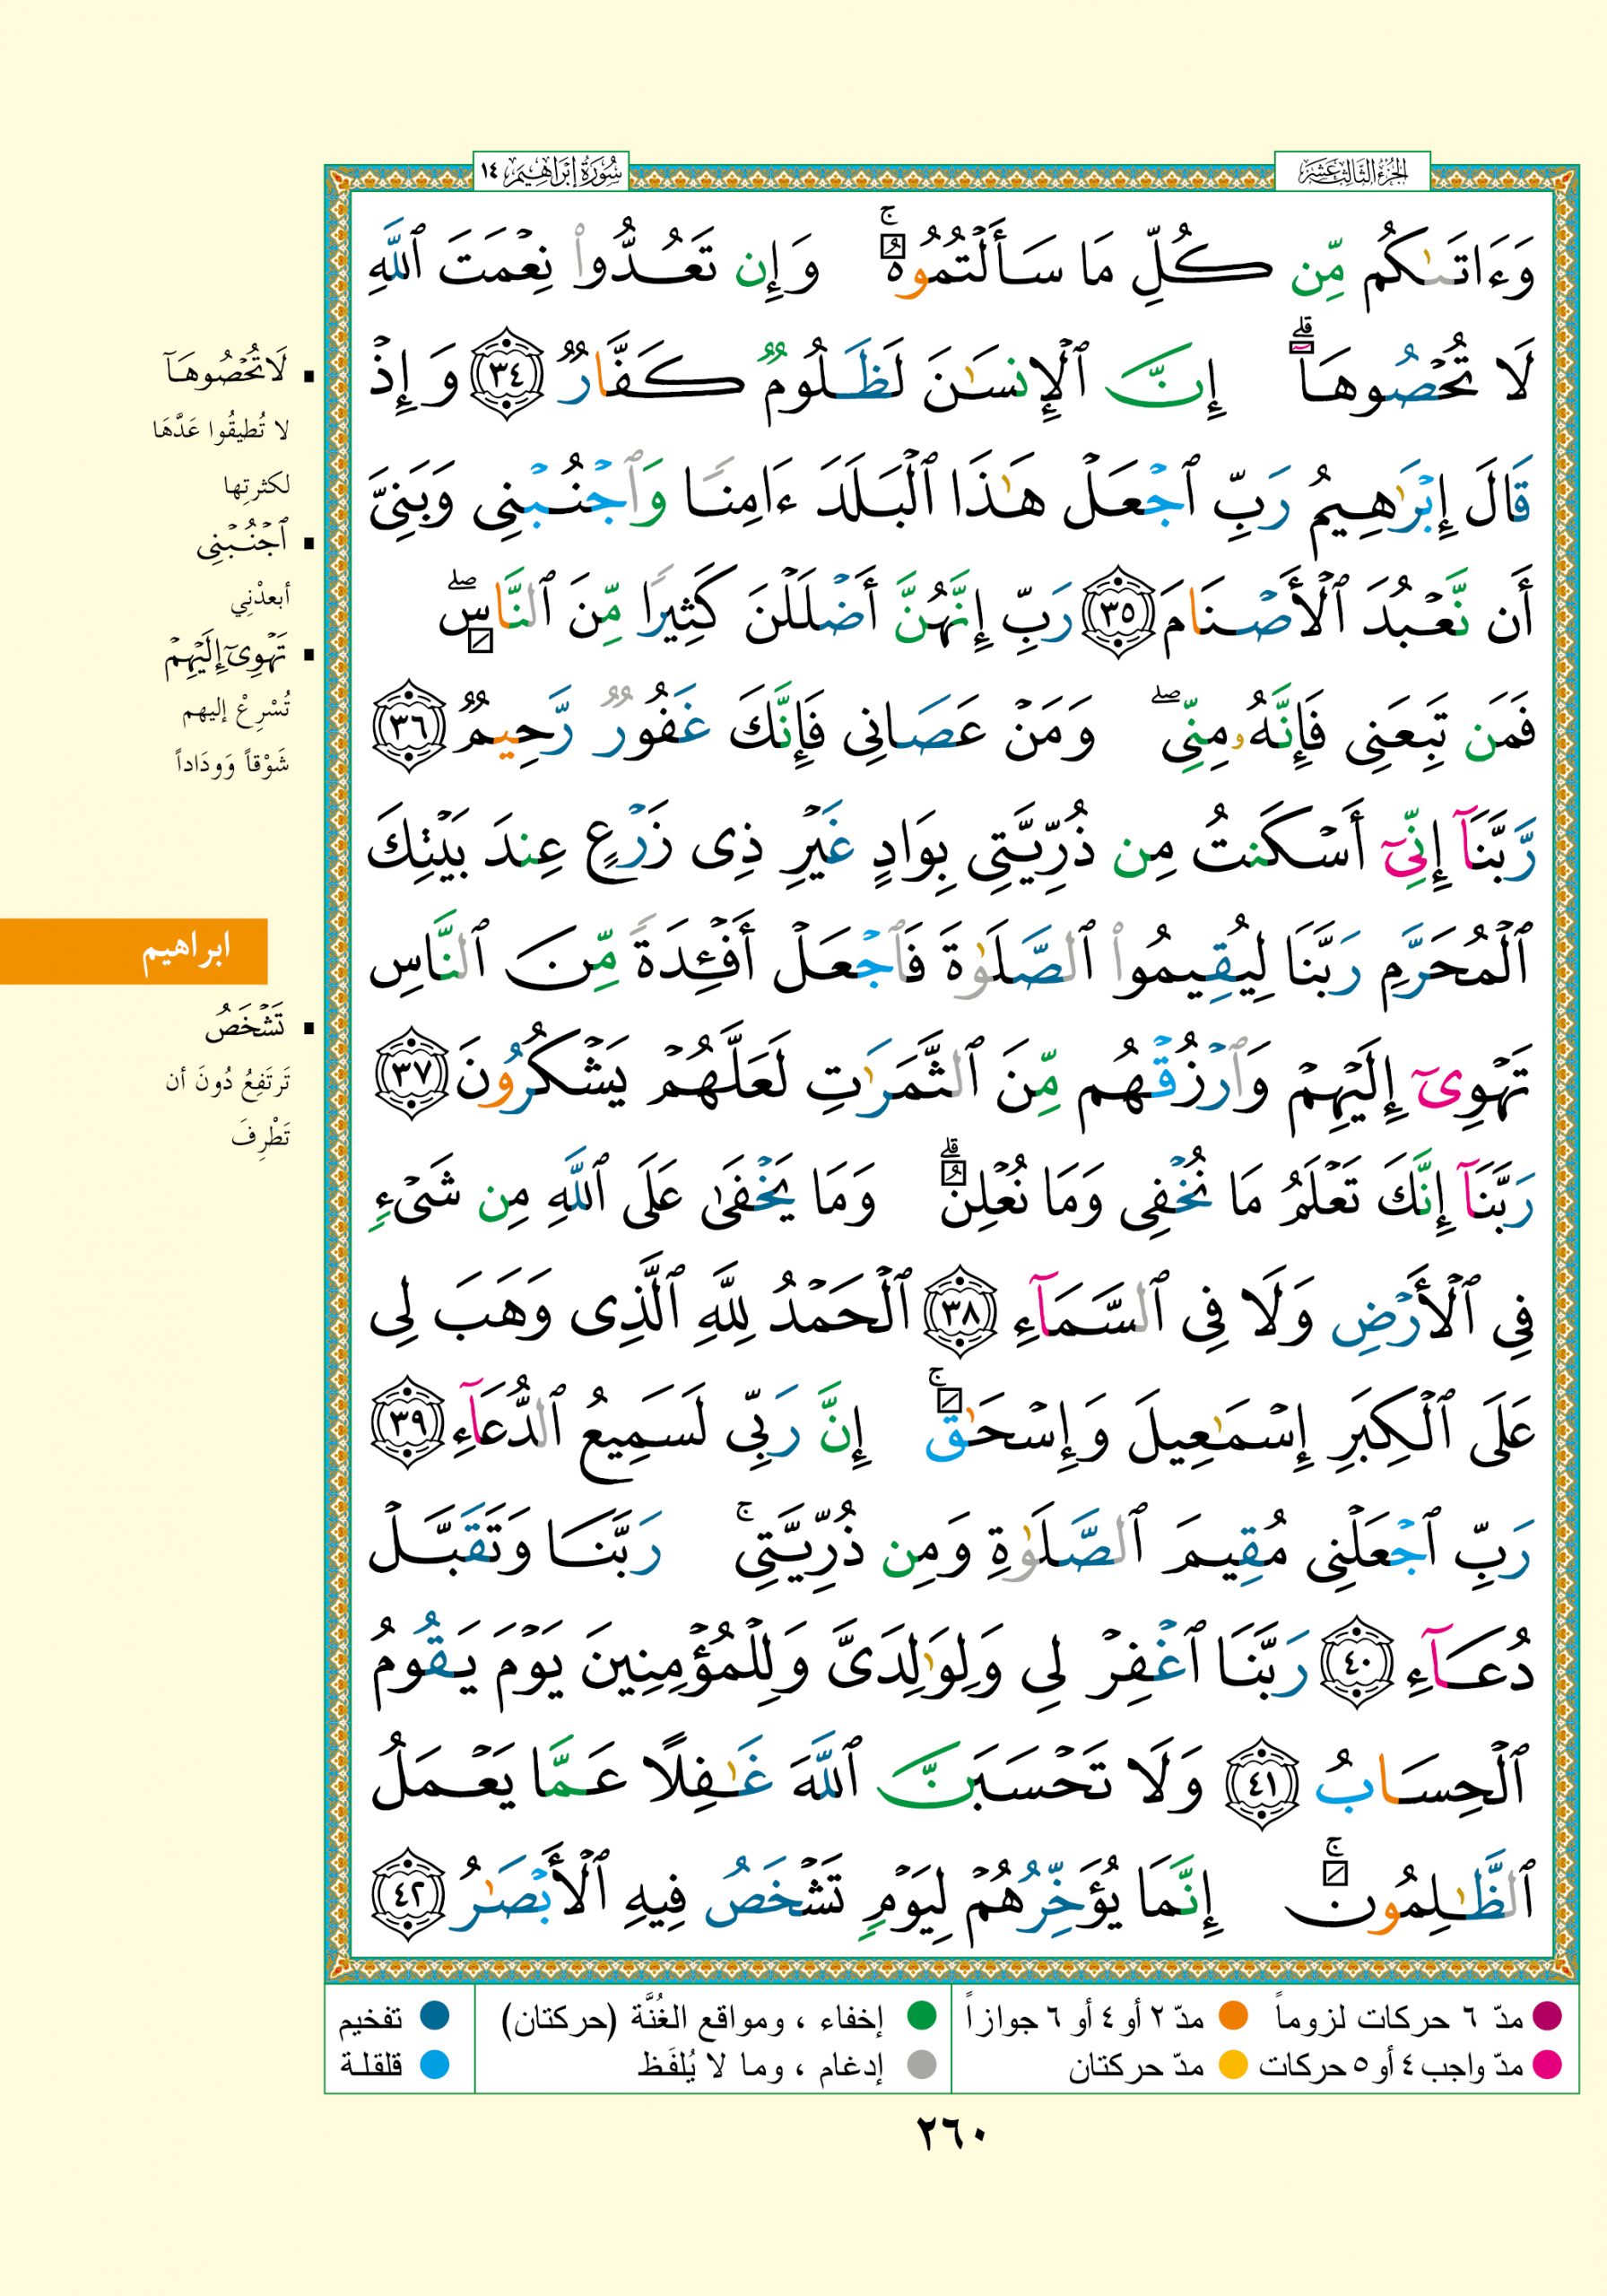 الجزء الثالث عشر
سورة إبراهيم ١٤
وَءَاتَىٰكُم مِّن كُلِّ مَا سَأَلْتُمُوهُ ۚ وَإِن تَعُدُّوا۟ نِعْمَتَ ٱللَّهِ
لَا تُحْصُوهَآ ۗ إِنَّ ٱلْإِنسَـٰنَ لَظَلُومٌ كَفَّارٌ ﴿٣٤﴾ وَإِذْ
قَالَ إِبْرَٰهِيمُ رَبِّ ٱجْعَلْ هَـٰذَا ٱلْبَلَدَ ءَامِنًا وَٱجْنُبْنِى وَبَنِىَّ
أَن نَّعْبُدَ ٱلْأَصْنَامَ ﴿٣٥﴾ رَبِّ إِنَّهُنَّ أَضْلَلْنَ كَثِيرًا مِّنَ ٱلنَّاسِ ۖ
فَمَن تَبِعَنِى فَإِنَّهُۥ مِنِّى ۖ وَمَنْ عَصَانِى فَإِنَّكَ غَفُورٌ رَّحِيمٌ ﴿٣٦﴾
رَّبَّنَآ إِنِّىٓ أَسْكَنتُ مِن ذُرِّيَّتِى بِوَادٍ غَيْرِ ذِى زَرْعٍ عِندَ بَيْتِكَ
ٱلْمُحَرَّمِ رَبَّنَا لِيُقِيمُوا۟ ٱلصَّلَوٰةَ فَٱجْعَلْ أَفْـِٔدَةً مِّنَ ٱلنَّاسِ
تَهْوِىٓ إِلَيْهِمْ وَٱرْزُقْهُم مِّنَ ٱلثَّمَرَٰتِ لَعَلَّهُمْ يَشْكُرُونَ ﴿٣٧﴾
رَبَّنَآ إِنَّكَ تَعْلَمُ مَا نُخْفِى وَمَا نُعْلِنُ ۗ وَمَا يَخْفَىٰ عَلَى ٱللَّهِ مِن شَىْءٍ
فِى ٱلْأَرْضِ وَلَا فِى ٱلسَّمَآءِ ﴿٣٨﴾ ٱلْحَمْدُ لِلَّهِ ٱلَّذِى وَهَبَ لِى
عَلَى ٱلْكِبَرِ إِسْمَـٰعِيلَ وَإِسْحَـٰقَ ۚ إِنَّ رَبِّى لَسَمِيعُ ٱلدُّعَآءِ ﴿٣٩﴾
رَبِّ ٱجْعَلْنِى مُقِيمَ ٱلصَّلَوٰةِ وَمِن ذُرِّيَّتِى ۚ رَبَّنَا وَتَقَبَّلْ
دُعَآءِ ﴿٤٠﴾ رَبَّنَا ٱغْفِرْ لِى وَلِوَٰلِدَىَّ وَلِلْمُؤْمِنِينَ يَوْمَ يَقُومُ
ٱلْحِسَابُ ﴿٤١﴾ وَلَا تَحْسَبَنَّ ٱللَّهَ غَـٰفِلًا عَمَّا يَعْمَلُ
ٱلظَّـٰلِمُونَ ۚ إِنَّمَا يُؤَخِّرُهُمْ لِيَوْمٍ تَشْخَصُ فِيهِ ٱلْأَبْصَـٰرُ ﴿٤٢﴾
▪ لَا تُحْصُوهَآ
لا تُطيقُوا عَدَّهَا
لكثرتِها
▪ ٱجْنُبْنِى
أبعدْنِي
▪ تَهْوِىٓ إِلَيْهِمْ
تُسْرِعْ إليهم
شَوْقاً وَودَاداً
ابراهيم
▪ تَشْخَصُ
تَرتَفِعُ دُونَ أن
تَطْرِفَ
مدّ ٦ حركات لزوماً
مدّ ٢ أو ٤ أو ٦ جوازاً
مدّ واجب ٤ أو ٥ حركات
مدّ حركتان
إخفاء ، ومواقع الغُنَّة (حركتان)
إدغام ، وما لا يُلفَظ
تفخيم
قلقلة
٢٦٠